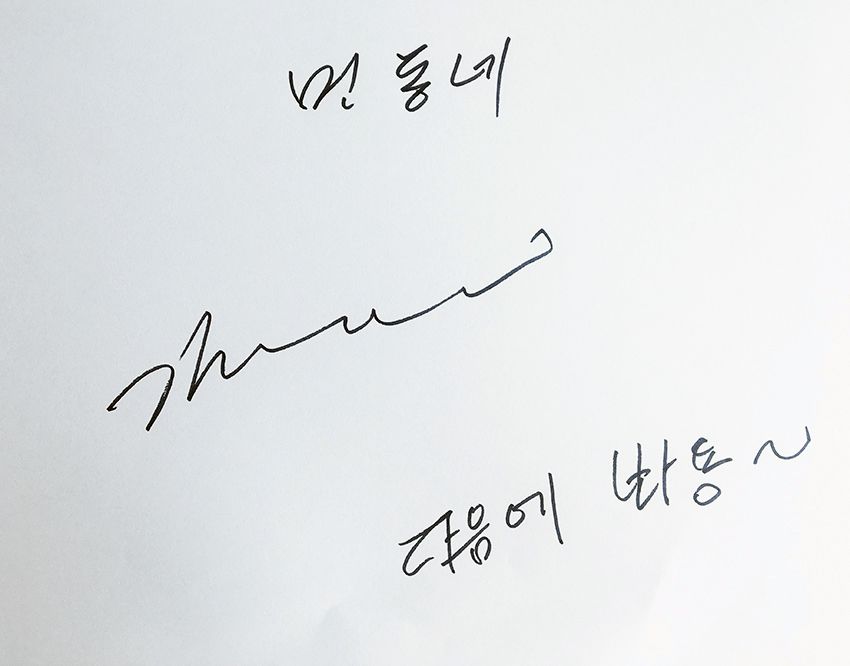 먼 동네
다음에 봐용~